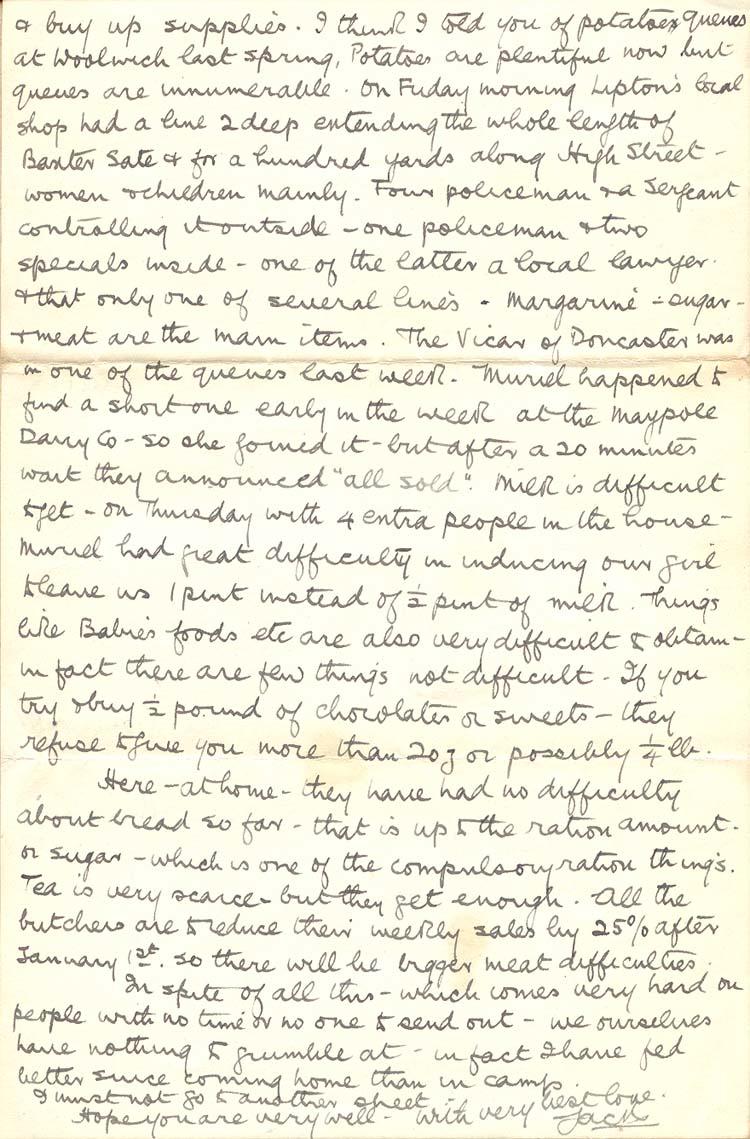 & buy up supplies. I think I told you of potatoes queues
at Woolwich last spring, Potatoes are plentiful now but
queues are innumerable. On Friday morning Lipton's local
shop had a line 2 deep extending the whole length of
Baxter Gate & for a hundred yards along High Street -
women & children mainly. Four policeman & a Sergeant
controlling it outside - one policeman & two
specials inside - one of the latter a local lawyer.
& that only one of several lines - Margarine - sugar -
& meat are the main items. The Vicar of Doncaster was
in one of the queues last week. Muriel happened to
find a short one early in the week at the Maypole
Dairy Co - so she joined it - but after a 20 minutes
wait they announced "all sold". Milk is difficult
to get - on Thursday with 4 extra people in the house -
Muriel had great difficulty in inducing our girl
to leave us 1 pint instead of ½ pint of milk. Things
like Babies foods etc are also very difficult to obtain -
in fact there are few things not difficult - If you
try to buy ½ pound of chocolates or sweets - they
refuse to give you more than 2oz or possibly ¼ lb.
Here - at home - they have had no difficulty
about bread so far - that is up to the ration amount.
or sugar - which is one of the compulsory ration things.
Tea is very scarce - but they get enough. All the
butchers are to reduce their weekly sales by 25% after
January 1st. so there will be bigger meat difficulties.
In spite of all this - which comes very hard on
people with no time or no one to send out - we ourselves
have nothing to grumble at - in fact I have fed
better since coming home than in camp.
I must not go to another sheet -
Hope you are very well - with very best love.
Jack